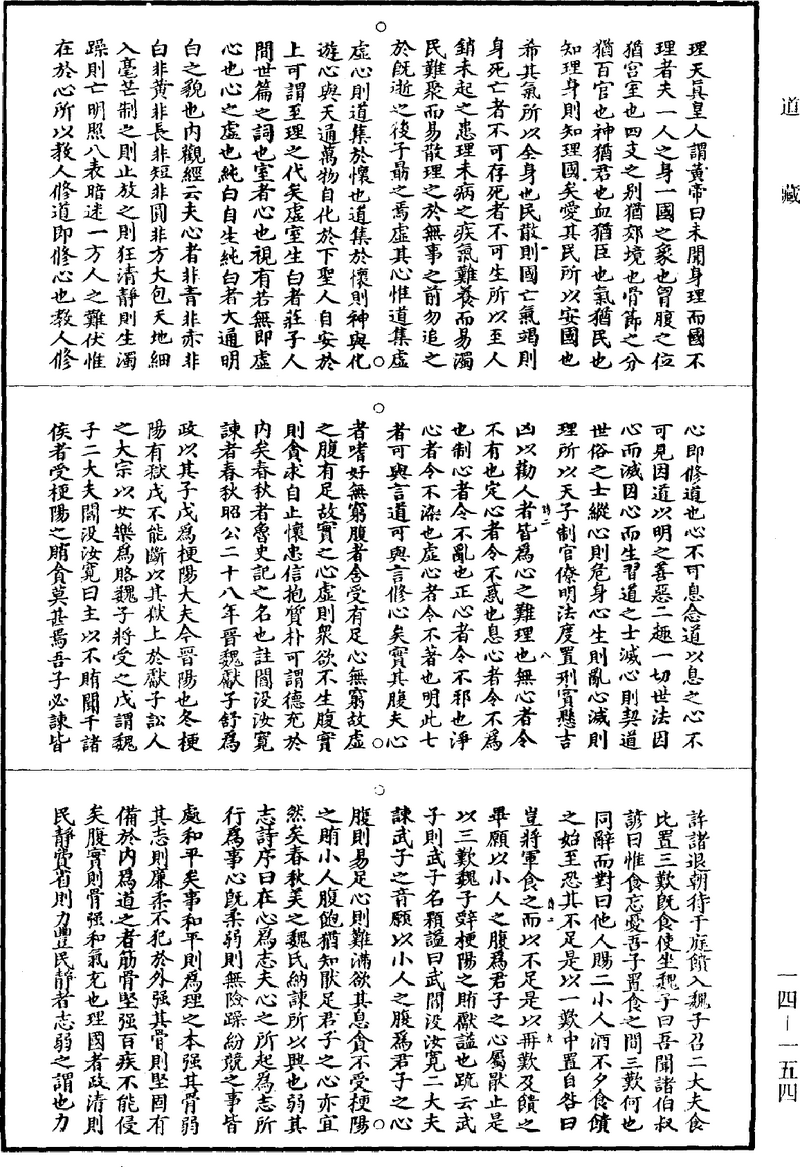 道藏
理天真皇人謂黃帝曰未聞身理而國不
理者夫一人之身一國之象也胷腹之位
猶宮室也四支之別猶郊境也骨節之分
猶百官也神猶君也血猶臣也氣猶民也
知理身則知理國矣愛其民所以安國也
希其氣所以全身也民散則國亡氣竭則
身死亡者不可存死者不可生所以至人
銷未起之患理未病之疾氣難養而易濁
民難聚而易散理之於無事之前勿追之
於既逝之後子勗之焉虛其心惟道集虛
虛心則道集於懷也道集於懷則神與化
遊心與天通萬物自化於下聖人自安於
上可謂至理之代矣虛室生白者莊子人
間世篇之詞也室者心也視有若無即虛
心也心之虛也純白自生純白者大通明
白之貌也內觀經云夫心者非青非赤非
白非黃非長非短非圓非方大包天地細
入毫芒制之則止放之則狂清靜則生濁
躁則亡明照八表暗迷一方人之難伏惟
在於心所以教人修道即修心也教人修
心即修道也心不可息念道以息之心不
可見因道以明之善惡二趣一切世法因
心而滅因心而生習道之士滅心則契道
世俗之士縱心則危身心生則亂心滅則
理所以天子制官僚明法度置刑賞懸吉
凶以勸人者皆為心之難理也無心者令
不有也定心者令不惑也息心者令不為
也制心者令不亂也正心者令不邪也淨
心者令不染也虛心者令不著也明此七
者可與言道可與言修心矣實其腹夫心
者嗜好無窮腹者含受有足心無窮故虛
之腹有足故實之心虛則衆欲不生腹實
則貪求自止懷忠信抱質朴可謂德充於
內矣春秋者魯史記之名也註閻没汝寬
諫者春秋昭公二十八年晉魏獻子舒為
政以其子戊為梗陽大夫今晉陽也冬梗
陽有獄戊不能斷以其獄上於獻子訟人
之大宗以女樂為賂魏子將受之戊謂魏
子二大夫閻没汝寬曰主以不賄聞于諸
侯者受梗陽之賄貪莫甚焉吾子必諫皆
許諸退朝待于庭饋入魏子召二大夫食
比置三歎既食使坐魏子曰吾聞諸伯叔
諺曰惟食忘憂吾子置食之間三歎何也
同辭而對曰他人賜二小人酒不夕食饋
之始至恐其不足是以一歎中置自咎曰
豈將軍食之而以不足是以再歎及饋之
畢願以小人之腹為君子之心屬猒止是
以三歎魏子辭梗陽之賄獻謚也疏云武
子則武子名顆謚曰武閻没汝寬二大夫
諫武子之音願以小人之腹為君子之心
腹則易足心則難滿欲其息貪不受梗陽
之賄小人腹飽猶知猒足君子之心亦宜
然矣春秋美之魏氏納諫所以興也弱其
志詩序曰在心為志夫心之所起為志所
行為事心既柔弱則無險躁紛競之事皆
處和平矣事和平則為理之本強其骨弱
其志則廉柔不犯於外強其骨則堅固有
備於內為道之者筋骨堅強百疾不能侵
矣腹實則骨強和氣充也理國者政清則
民靜賞省則力豐民靜者志弱之謂也力
一四－一五四